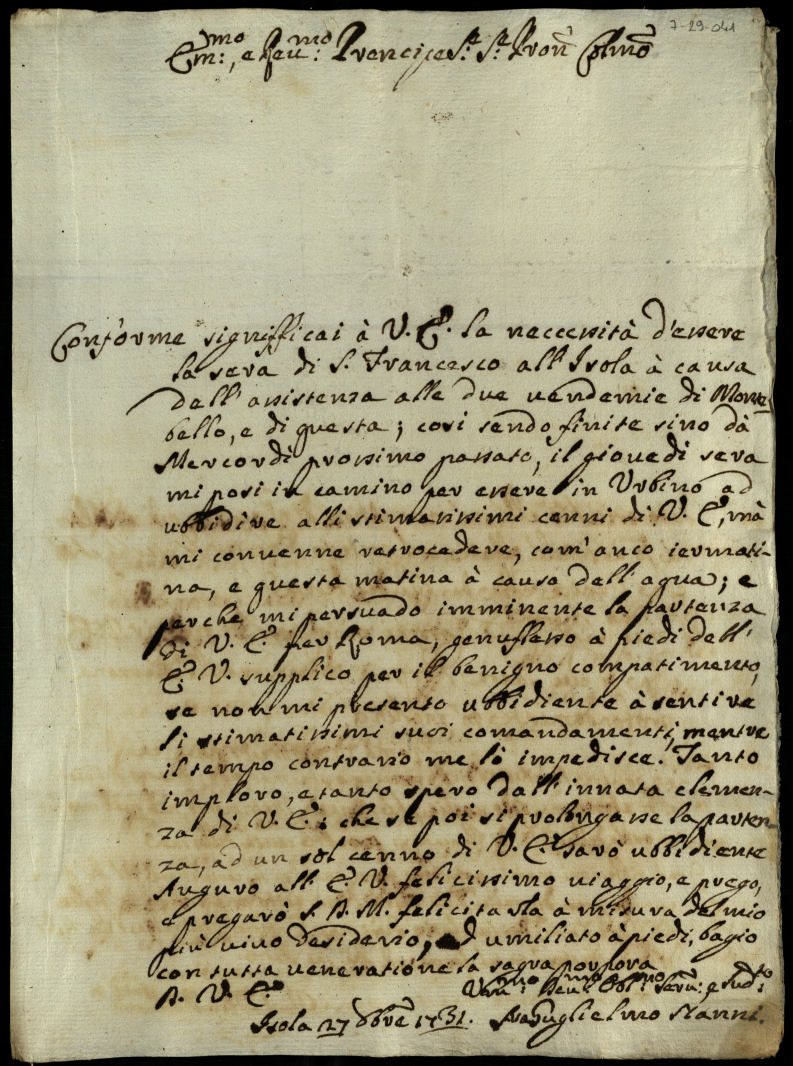 7-29-041
Em:mo, e Reu:mo Prencipe Sr. Sr. Pron Colmo
Conforme significai à V. E. la neccessità d'essere
la sera di S. Francesco all'Isola à causa
dell'assistenza alle due uendemie di Monte
bello, e di questa; cosi sendo finite sino dà
Mercordi prossimo passato, il giouedi sera
mi posi in camino per essere in Urbino ad
ubbidire alli stimatissimi cenni di V. E., mà
mi conuenne retrocedere, com'anco iermati-
na, e questa matina à causa dell'aqua; e
perche mi persuado imminente la partenza
di V. E. per Roma, genuflesso à piedi dell'
E. V. supplico per il benigno compatimento,
se non mi presento ubbidiente à sentire
li stimatissimi suoi comandamenti, mentre
il tempo contrario me lo impedisce. Tanto
imploro, e tanto spero dall'innata clemen-
za di V. E.; che se poi si prolongasse la parten-
za, ad un sol cenno di V. E. sarò ubbidiente
Auguro all'E. V. felicissimo uiaggio, e prego,
e pregarò S. D. M. felicitarla à misura del mio
più uiuo desiderio, ed umiliato à piedi, bagio
con tutta ueneratione la sagra porpora
D. V. E.
Um:mo Deu:mo Obl:mo Seru:, e Sud:to
Isola 27 8bre 1731. Guglielmo Nanni.